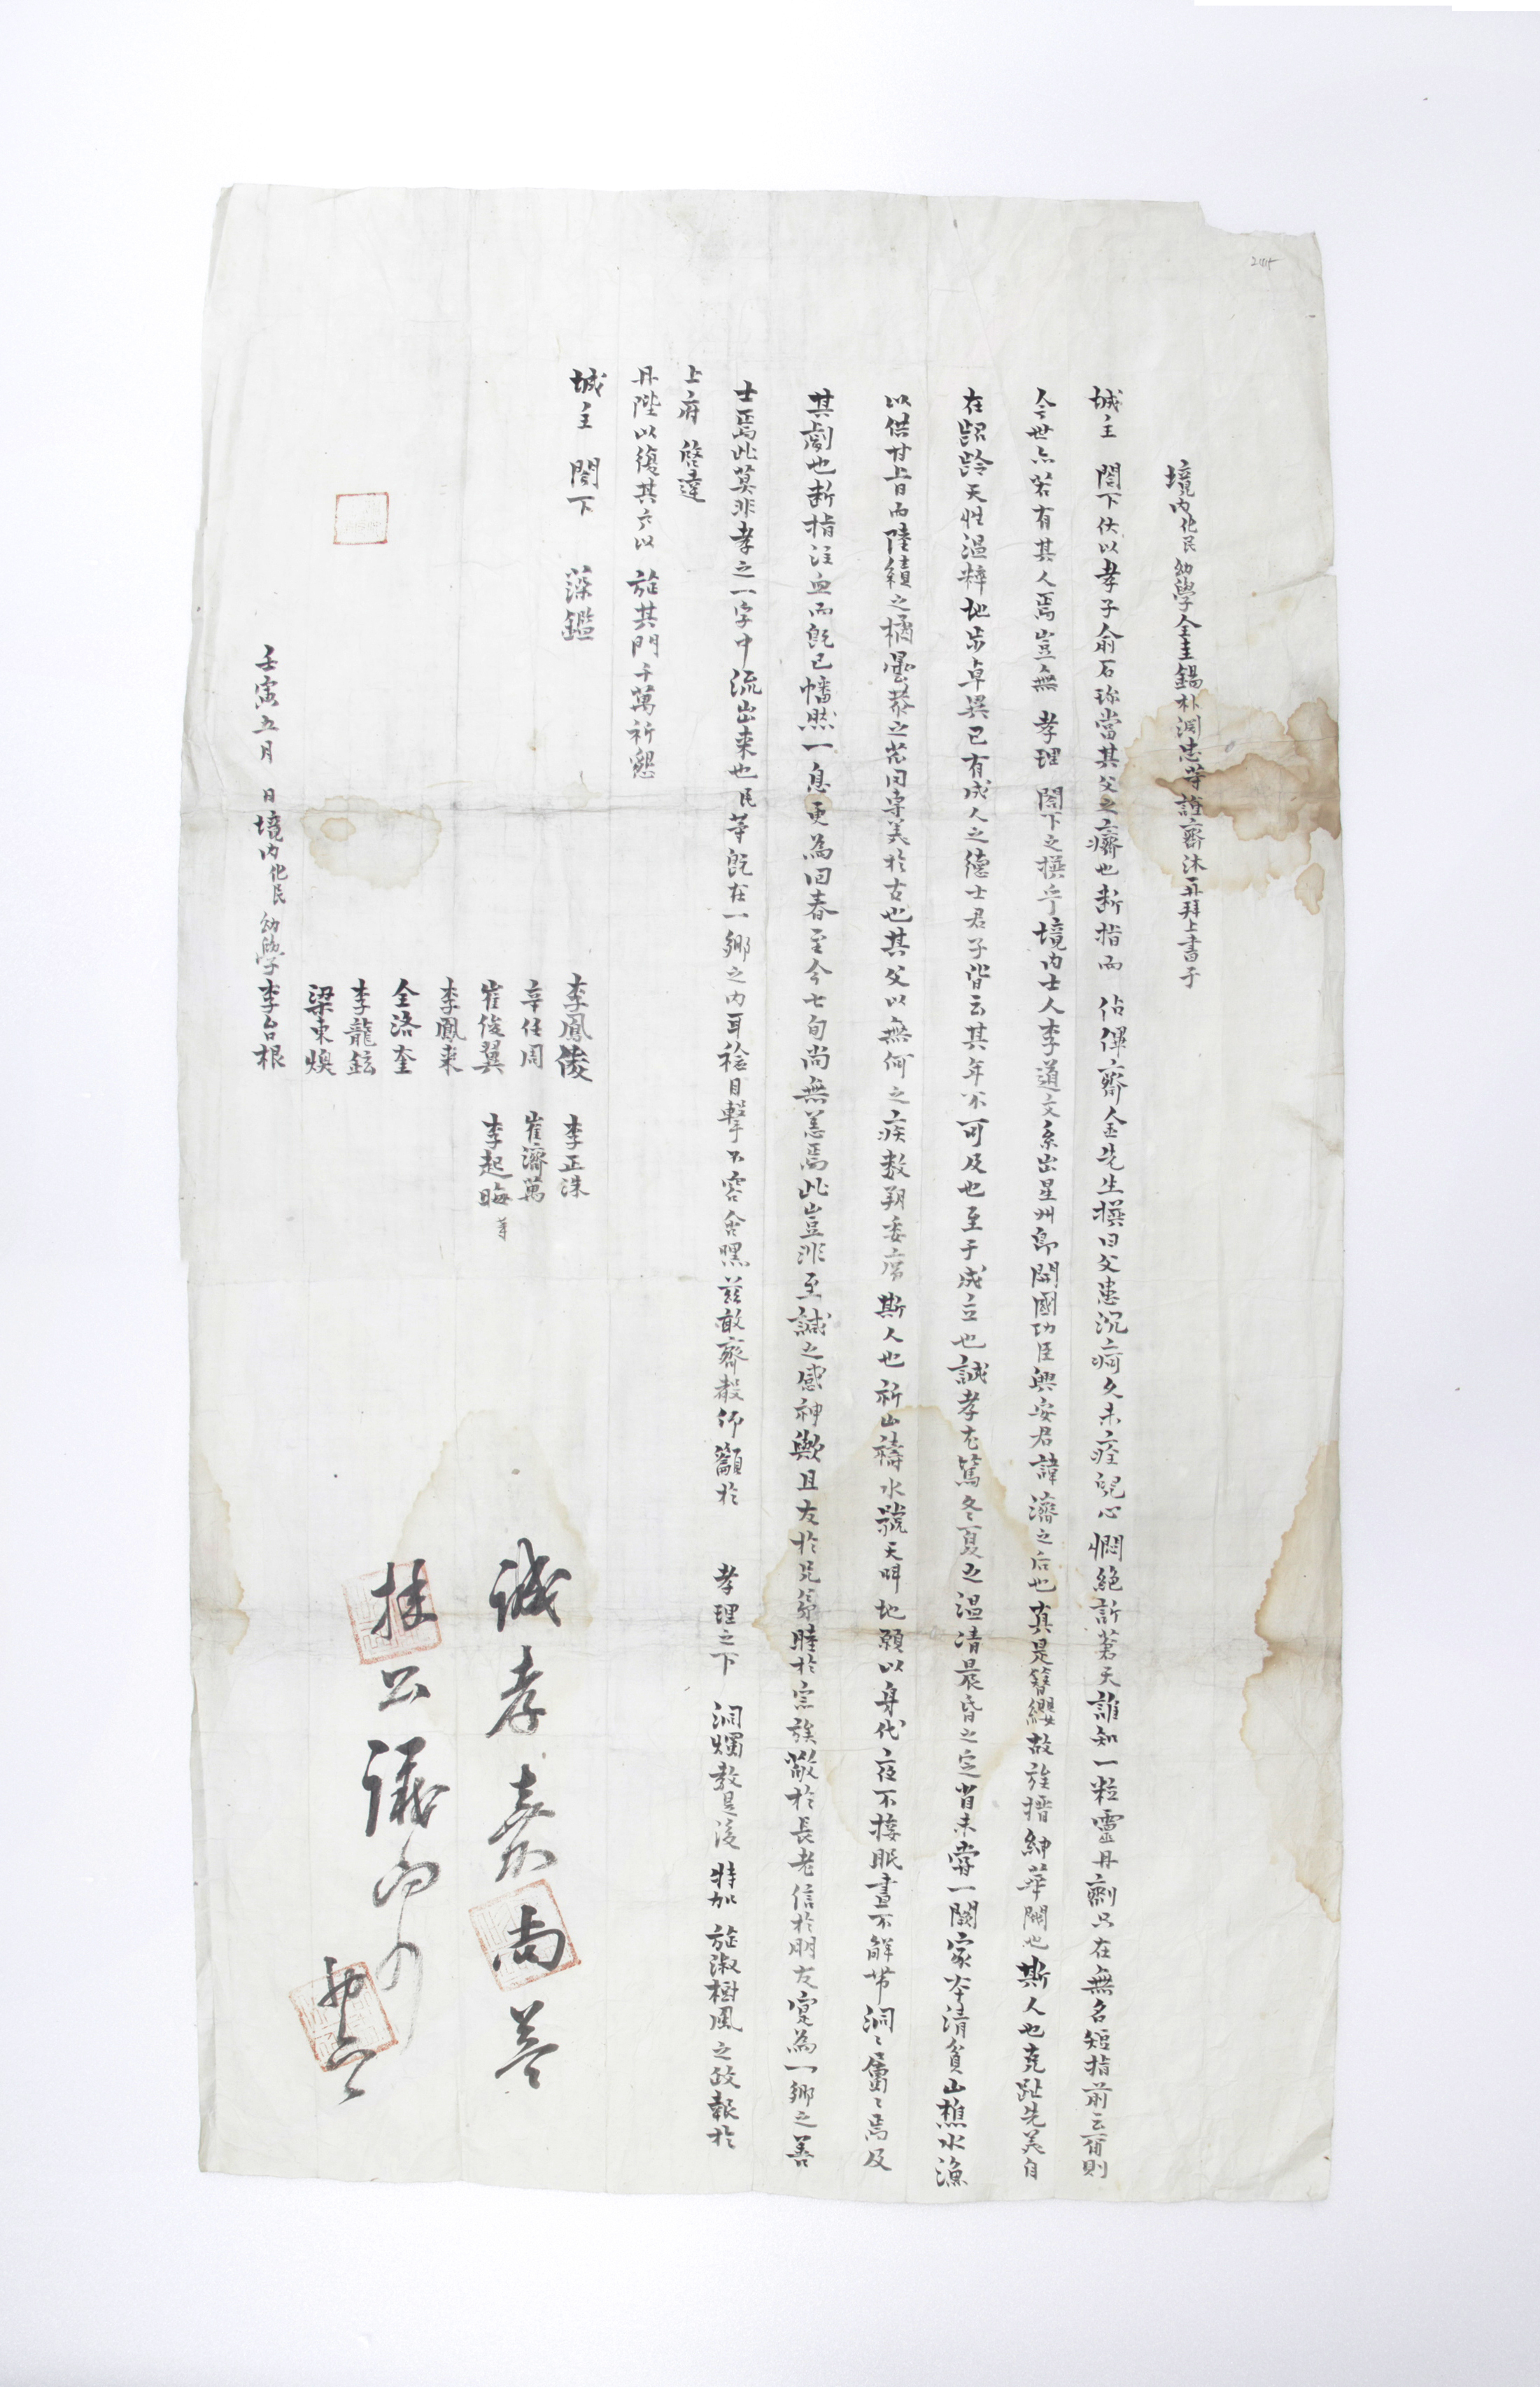 境內化民幼學金圭錫朴淵忠等謹齋沐再拜上書于
城主 閤下伏以孝子俞石珎當其父之癠也斷指而 佔俾齋金先生撰曰父患沉痾久未痊兒心惘絶訴蒼天誰知一粒靈丹劑只在無名短指前云爾則
今世亦若有其人焉豈無 孝理 閤下之撰乎境內士人李道文系出星州即開國功臣興安君諱濟之后也真是簪纓故族搢紳華閥也斯人也克趾先美自
在髫齡天性溫粹地步卓異已有成人之德士君子皆云其年不可及也至于成立也誠孝尤篤冬夏之溫凊晨昏之定省未嘗一闕家本清貧山樵水漁
以供甘旨而陸績之橘曇恭之苽罔專美於古也其父以無何之疾數朔委席 斯人也祈山禱水號天叫地願以身代夜不接眠晝不解帶洞〻屬〻焉及
其劇也斷指注血而旣已幡然一息更為回春至今七旬尚無恙焉此豈非至誠之感神歟且友於兄弟睦於宗族敬於長老信於朋友寔為一鄉之善
士焉此莫非孝之一字中流出來也民等旣在一鄉之內耳稔目擊不容含嘿玆敢齊聲仰籲於 孝理之下 洞燭敎是後 特加 旌淑樹風之政報於
上府 啓達
丹陛以復其戶以 旌其門千萬祈懇
城主 閤下 藻鑑
壬寅五月 日境內化民幼學李台根
梁東煥
李龍鉉
全洛奎
李鳳來
崔俊翼 李起晦 等
辛任周 崔濟萬
李鳳俊 李正洙
誠孝嘉尚 益
採公議向事